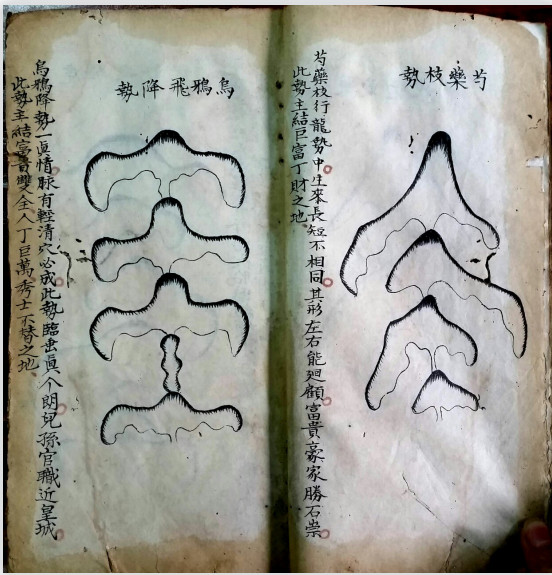 芍藥枝勢
芍藥枝行龍勢中生來長短不相同其形左右能廻顧富貴豪家勝石崇
此勢主結巨富丁財之地
烏鴉飛降勢
烏鴉降勢一真情脉有輕清穴必成此勢臨出真个朗兒孫官職近皇城
此勢主結富貴雙全人丁巨萬秀士不替之地